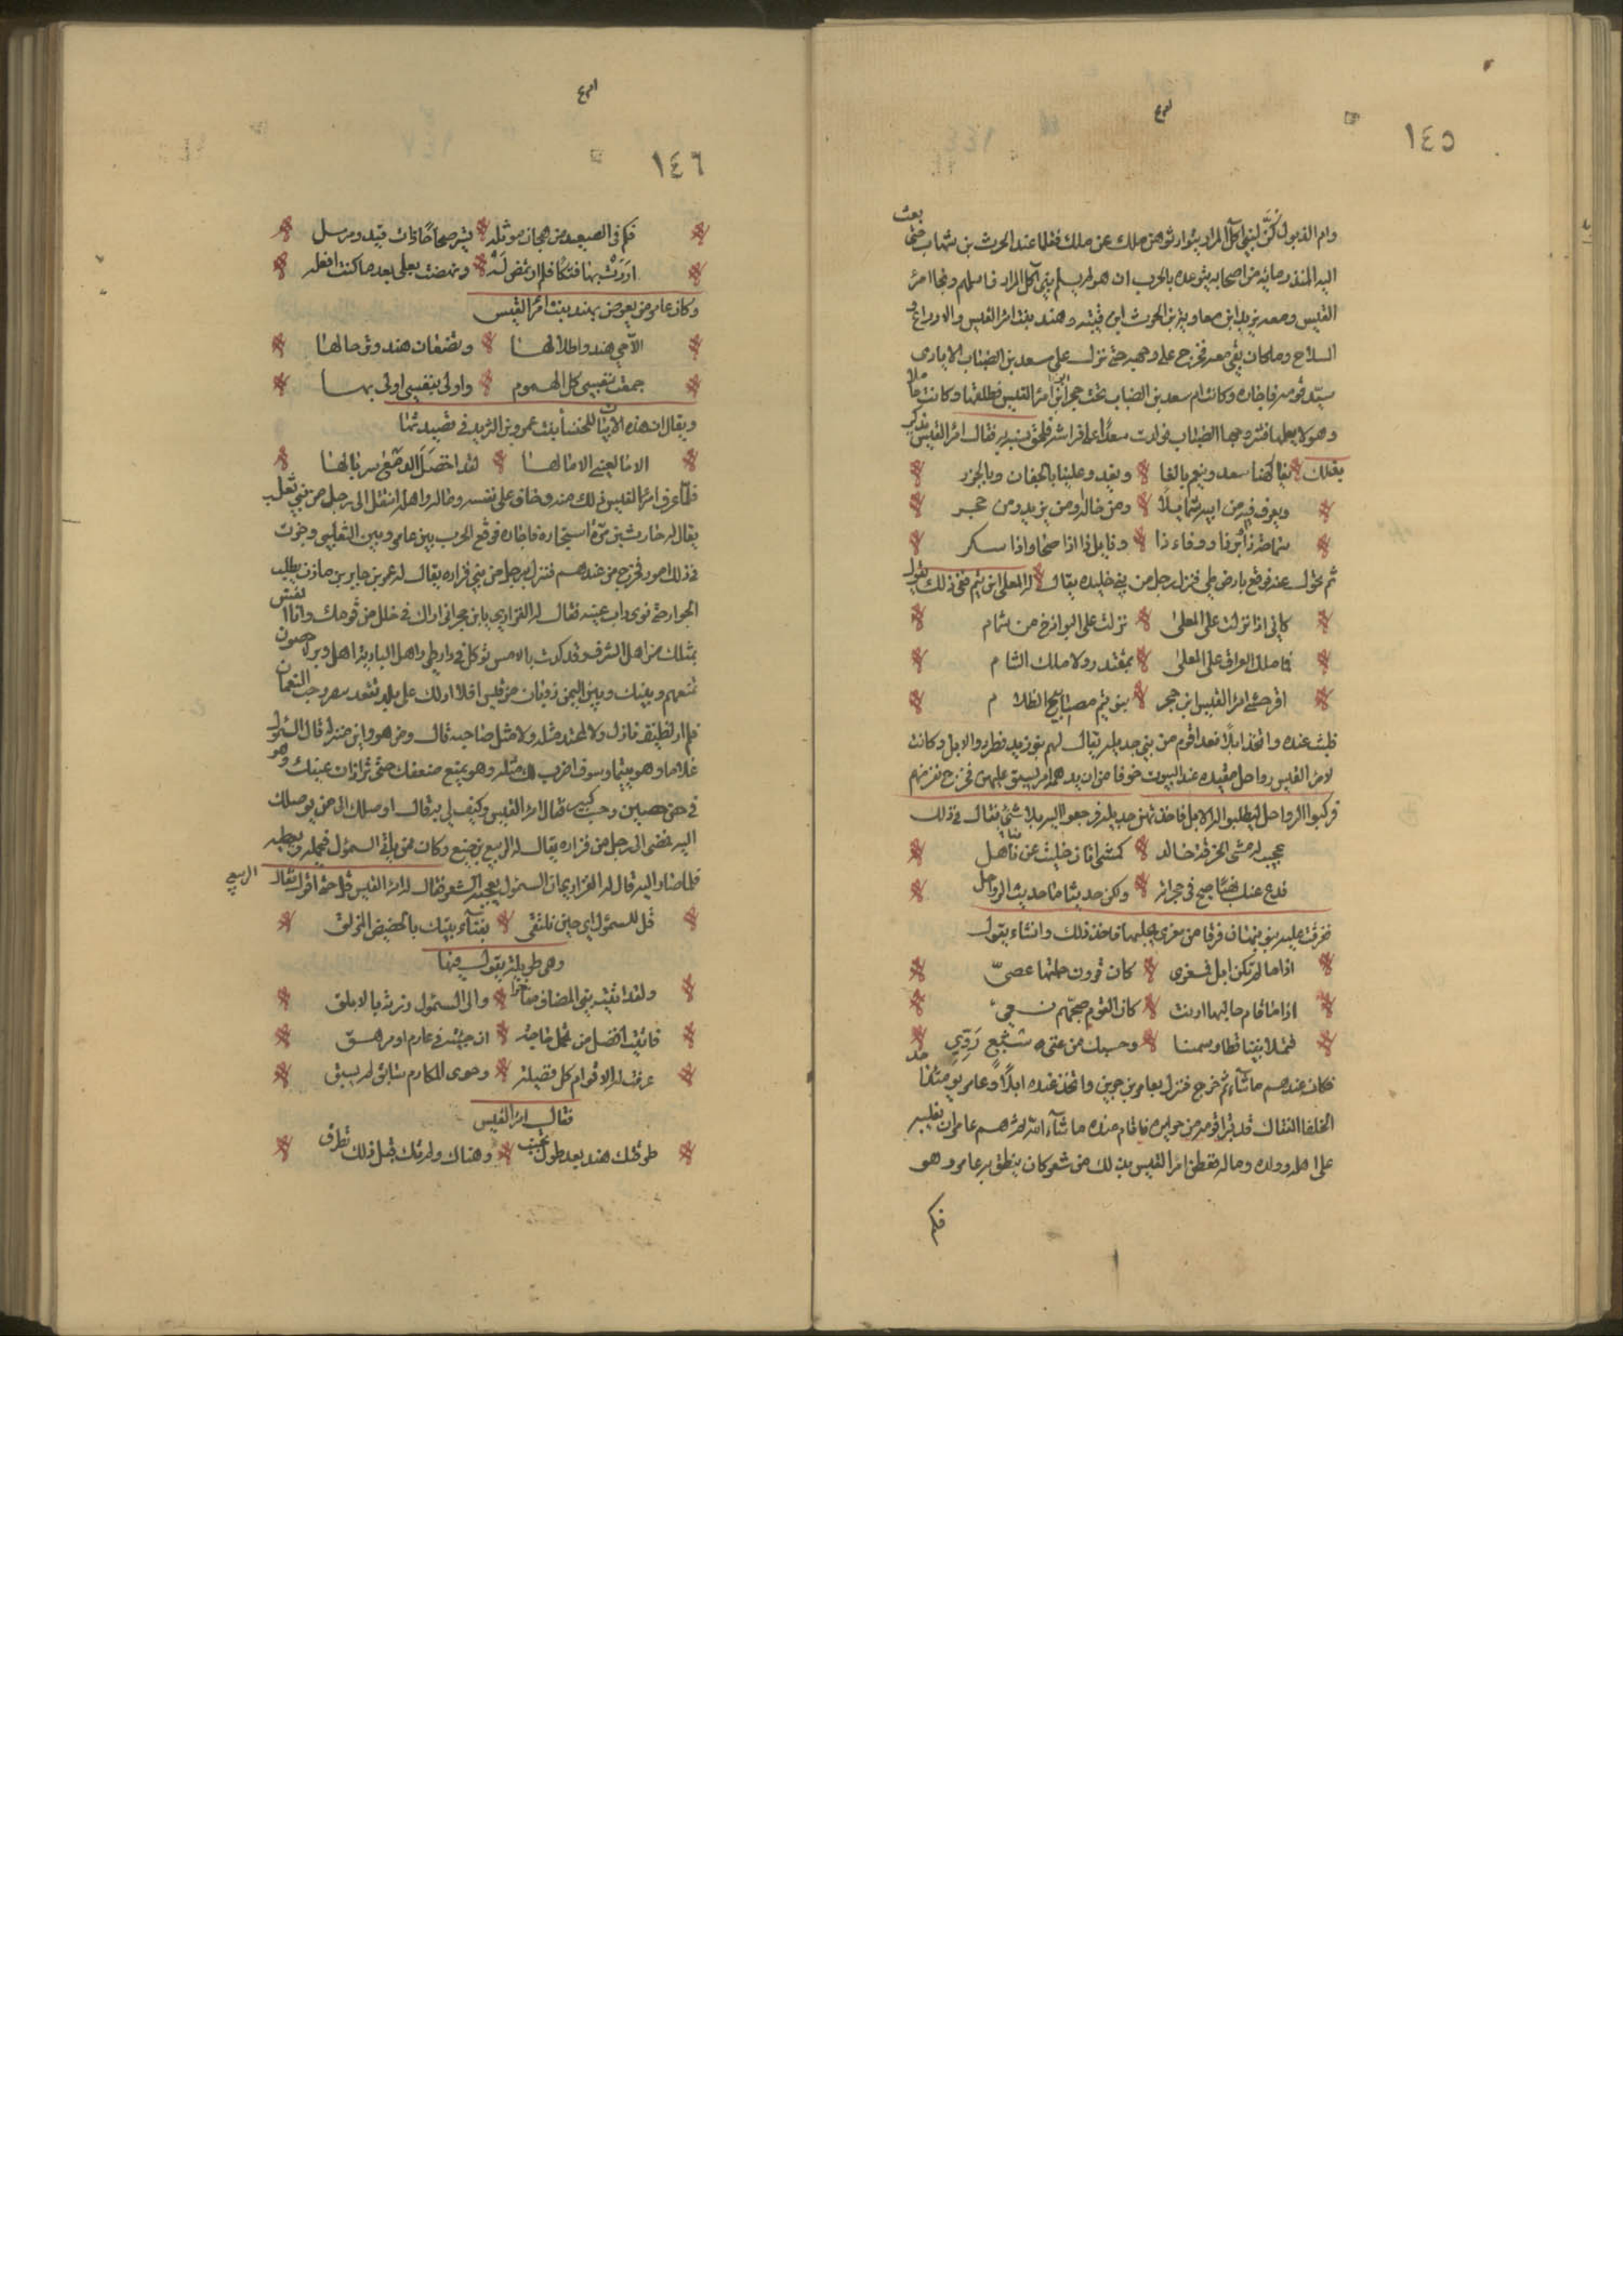 ١٤٥
وام الذيول كن لبني آكل المرار يتوارثوهن ملك عن ملك فقلما عند الحرث بن شهاب حتى بعث
اليه المنذر مائه من اصحابه يتوعده بالحرب ان هو لم يسلم بني آكل المرار فاسلمهم ونجا امرئ
القيس ومعه يزيد ابن معاوية بن الحرث ابن قيته وهند بنت امرئ القيس والادراع و
السلاح ومال كان بقي معه فخرج على وجهه حتى نزل على سعد بن الضباب الايادي
سيد قومه فاجاره وكانت ام سعد بن الضباب تحت حجر ابن امرئ القيس فطلقها وكانت حاملا
وهو لا يعلم فتزوجها الضباب فولدت سعدا على فراشه فلحق نسبه به فقال امرئ القيس يذكر
يفكهنا سعد وينعم بالنا ويغدو علينا بالجفان وبالجزر
ويعرف فيه من ابيه شمايلا ومن خاله ومن يزيد ومن حجر
سماحة ذا وبر ذا ووفاء ذا ونايل ذا اذا صحا واذا سكر
ثم تحول عنه فوقع بارض طي فنزل برجل من بني جديله يقال له المعلى ابن تيم ففي ذلك يقول
كاني اذا نزلت على المعلى نزلت على البواذخ من شمام
فما ملك العراق على المعلى بمقتدر ولا ملك الشام
اقر حشى امرئ القيس ابن حجر بنو تيم مصابيح الظلام
فلبث عنده واتخذ ابلا فعدا قوم من بني جديله يقال لهم بنو زيد فطردوا الابل وكانت
لامرئ القيس رواحل مقيده عند البيوت خوفا من ان يدهمه امر ليسبق عليهن فخرج نفر منهم
فركبوا الرواحل ليطلبوا له الابل فاخذتهن جديله فرجعوا اليه بلا شئ فقال في ذلك
عجبت له مشي الحزقة خالد كمشي اتان حليت عن مناهل
فدع عنك نهبا صيح في حجراته ولكن حديثا ما حديث الرواحل
ففرقت عليه بنو نبهان فرقا من معزى يحلبها فاخذ ذلك وانشاء يقول
اذا ما لم تكن ابل فمعزى كان قرون جلتها عصي
اذا ما قام حالبها ارنت كان القوم صبحهم نعي
فتملا بيتنا قطا وسمنا وحسبك من غنى شبع وري
فكان عندهم ما شاء ثم خرج فنزل بعامر بن جوين واتخذ عنده ابلا وعامر يومئذ احد
الخلفا الفتاك قد تبرا قومه من جرايره فاقام عنده ما شاء الله ثم هم عامر ان يغلبه
على اهله وولده وماله ففطن امرئ القيس بذلك من شعر كان ينطق به عامر وهو
فكم
١٤٦
فكم في الصعيد من هجان موثله تسير صحاحا ذات قيد ومرسل
اردت بها فتكا فلم ارتمض له ونهنهت نفسي بعد ما كنت افعله
وكان عامر من يعرض بهند بنت امرئ القيس
الا حي هند واطلالها وتضعان هند وترحالها
هممت بنفسي كل الهموم واولى بنفسي اولى بها
ويقال ان هذه الابيات للخنسا بنت عمرو بن الثريد في قصيدتها
الا ما لعيني الا ما لها لقد اخضل الدمع سربالها
فلما عرف امرئ القيس ذلك منه وخاف على نفسه وماله واهله انتقل الى رجل من بني ثعلب
يقال له حارث بن مرة استجاره فاجاره فوقع الحرب بين عامر وبين الثعلبي وجرت
في ذلك امور فخرج من عندهم فنزل برجل من بني فزاره يقال له عمرو بن جابر بن مازن يطلب
الجوار حتى نوى ذات عينه فقال له الفزاري يا بن حجر اني اراك في خلل من قومك وانا انفس
بمثلك من اهل الشرف وقد كدت بالامس توكل في دار طي واهل الباديه اهل وبر لا حصون
تمنعهم وبينك وبين اليمن ذوبان من قيس افلا ادلك على بلد فقد جيت النعمان
فلم ار لضيف نازل ولا لمجتد مثله ولا مثل صاحبه قال ومن هو واين منزله قال السموأل
بتيما وسوف اضرب لك مثله وهو يمنع ضعفك حتى ترا ذات عينك وهو
في حصن حصين وحسب كبير فقال امرئ القيس وكيف لي به قال اوصلك الى من يوصلك
اليه فمضى الى رجل من فزاره يقال له الربيع بن ضبع وكان ممن ياتي السموأل فيحمله ويعطيه
فلما صار اليه قال له الفزاري ان السموأل يعجبه الشعر فقال له امرئ القيس قل حتى اقول فقال الربيع
قل للسموأل اي حين نلتقي بفناء بيتك بالحضيض المزلق
وهي طويله يقول فيها
ولقد اتيت بني المضاف مفاخرا والى السموأل زرته بالابلق
فاتيت افضل من تحمل حاجة ان جئته في غارم او مرهق
عرفت له الاقوام كل فضيله وحوى المكارم سابق لم يسبق
فقال امرئ القيس
طرقتك هند بعد طول تجنب وهناك ولم تك قبل ذلك تطرق